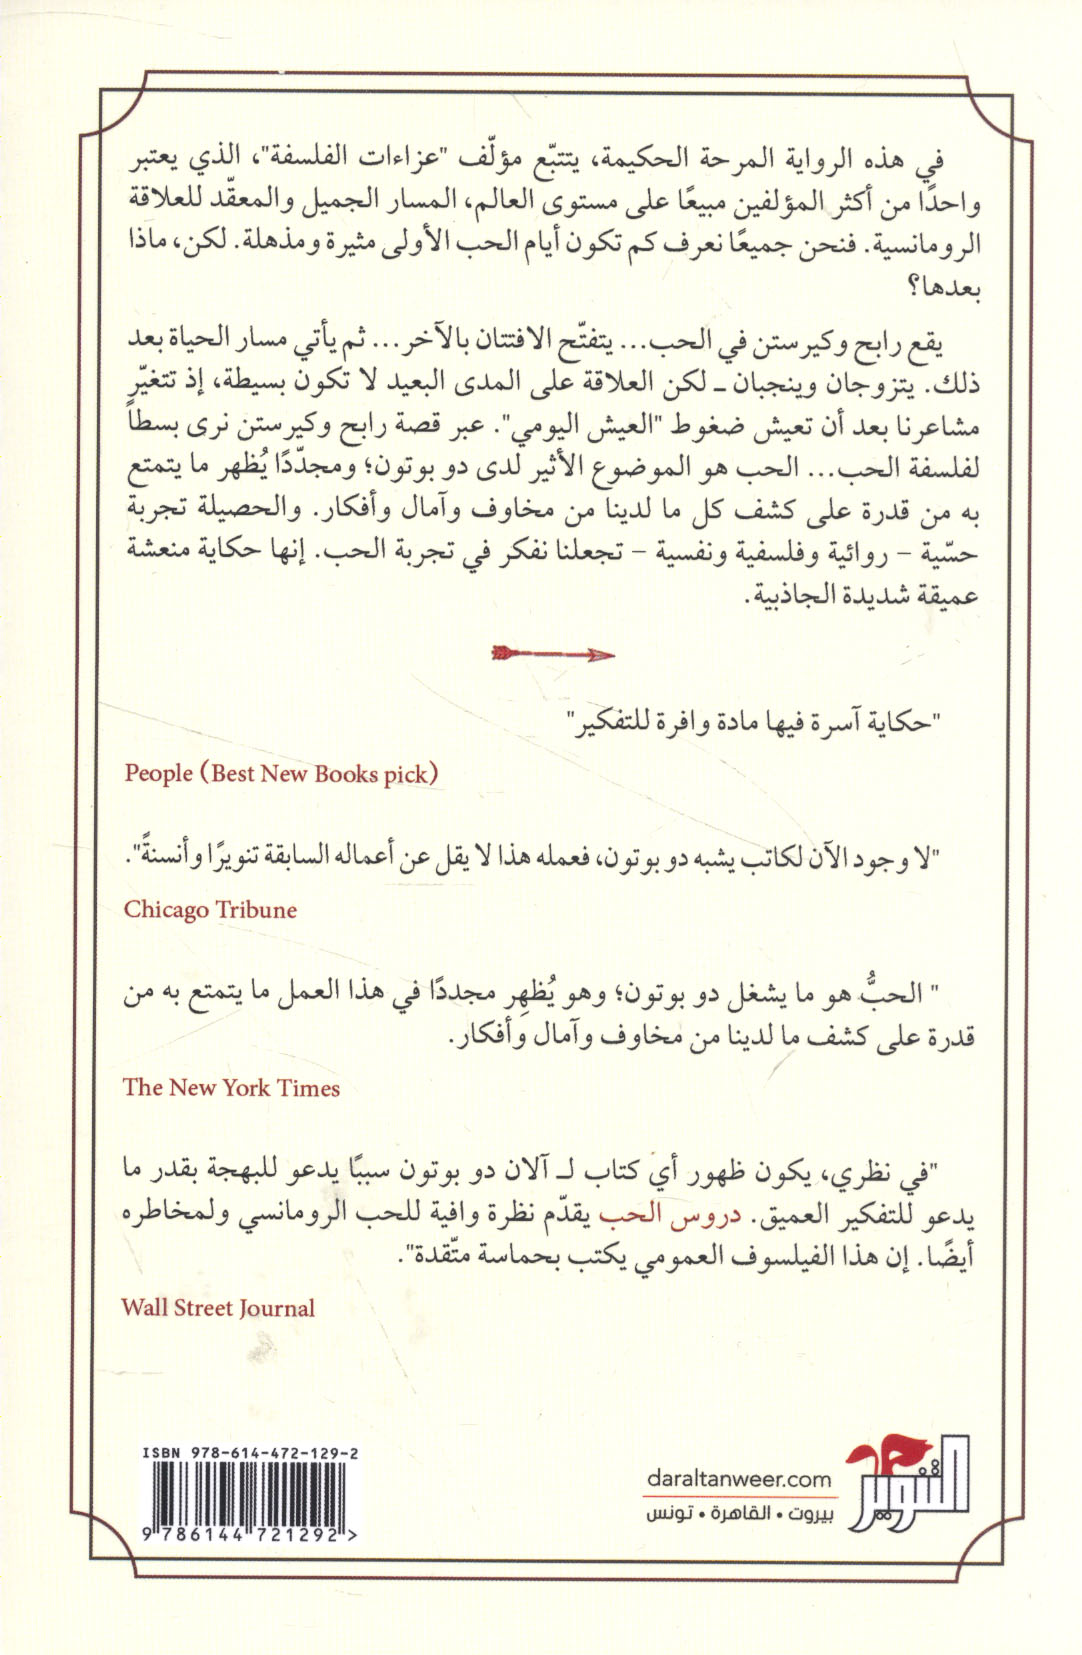 في هذه الرواية المرحة الحكيمة، يتتبّع مؤلّف "عزاءات الفلسفة"، الذي يعتبر
واحدًا من أكثر المؤلفين مبيعًا على مستوى العالم، المسار الجميل والمعقّد للعلاقة
الرومانسية. فنحن جميعًا نعرف كم تكون أيام الحب الأولى مثيرة ومذهلة. لكن، ماذا
بعدها؟
يقع رابح وكيرستن في الحب... يتفتّح الافتتان بالآخر... ثم يأتي مسار الحياة بعد
ذلك. يتزوجان وينجبان ـ لكن العلاقة على المدى البعيد لا تكون بسيطة، إذ تتغيّر
مشاعرنا بعد أن تعيش ضغوط "العيش اليومي". عبر قصة رابح وكيرستن نرى بسطاً
لفلسفة الحب... الحب هو الموضوع الأثير لدى دو بوتون؛ ومجدّدًا يُظهر ما يتمتع
به من قدرة على كشف كل ما لدينا من مخاوف وآمال وأفكار. والحصيلة تجربة
حسّية – روائية وفلسفية ونفسية – تجعلنا نفكر في تجربة الحب. إنها حكاية منعشة
عميقة شديدة الجاذبية.
"حكاية آسرة فيها مادة وافرة للتفكير"
People (Best New Books pick)
"لا وجود الآن لكاتب يشبه دو بوتون، فعمله هذا لا يقل عن أعماله السابقة تنويرًا وأنسنةً".
Chicago Tribune
" الحبُّ هو ما يشغل دو بوتون؛ وهو يُظهِر مجددًا في هذا العمل ما يتمتع به من
قدرة على كشف ما لدينا من مخاوف وآمال وأفكار.
The New York Times
"في نظري، يكون ظهور أي كتاب لـ آلان دو بوتون سببًا يدعو للبهجة بقدر ما
يدعو للتفكير العميق. دروس الحب يقدّم نظرة وافية للحب الرومانسي ولمخاطره
أيضًا. إن هذا الفيلسوف العمومي يكتب بحماسة متّقدة".
Wall Street Journal
ISBN 978-614-472-129-2
9 786144 721292 >
التنوير
daraltanweer.com
بيروت • القاهرة • تونس